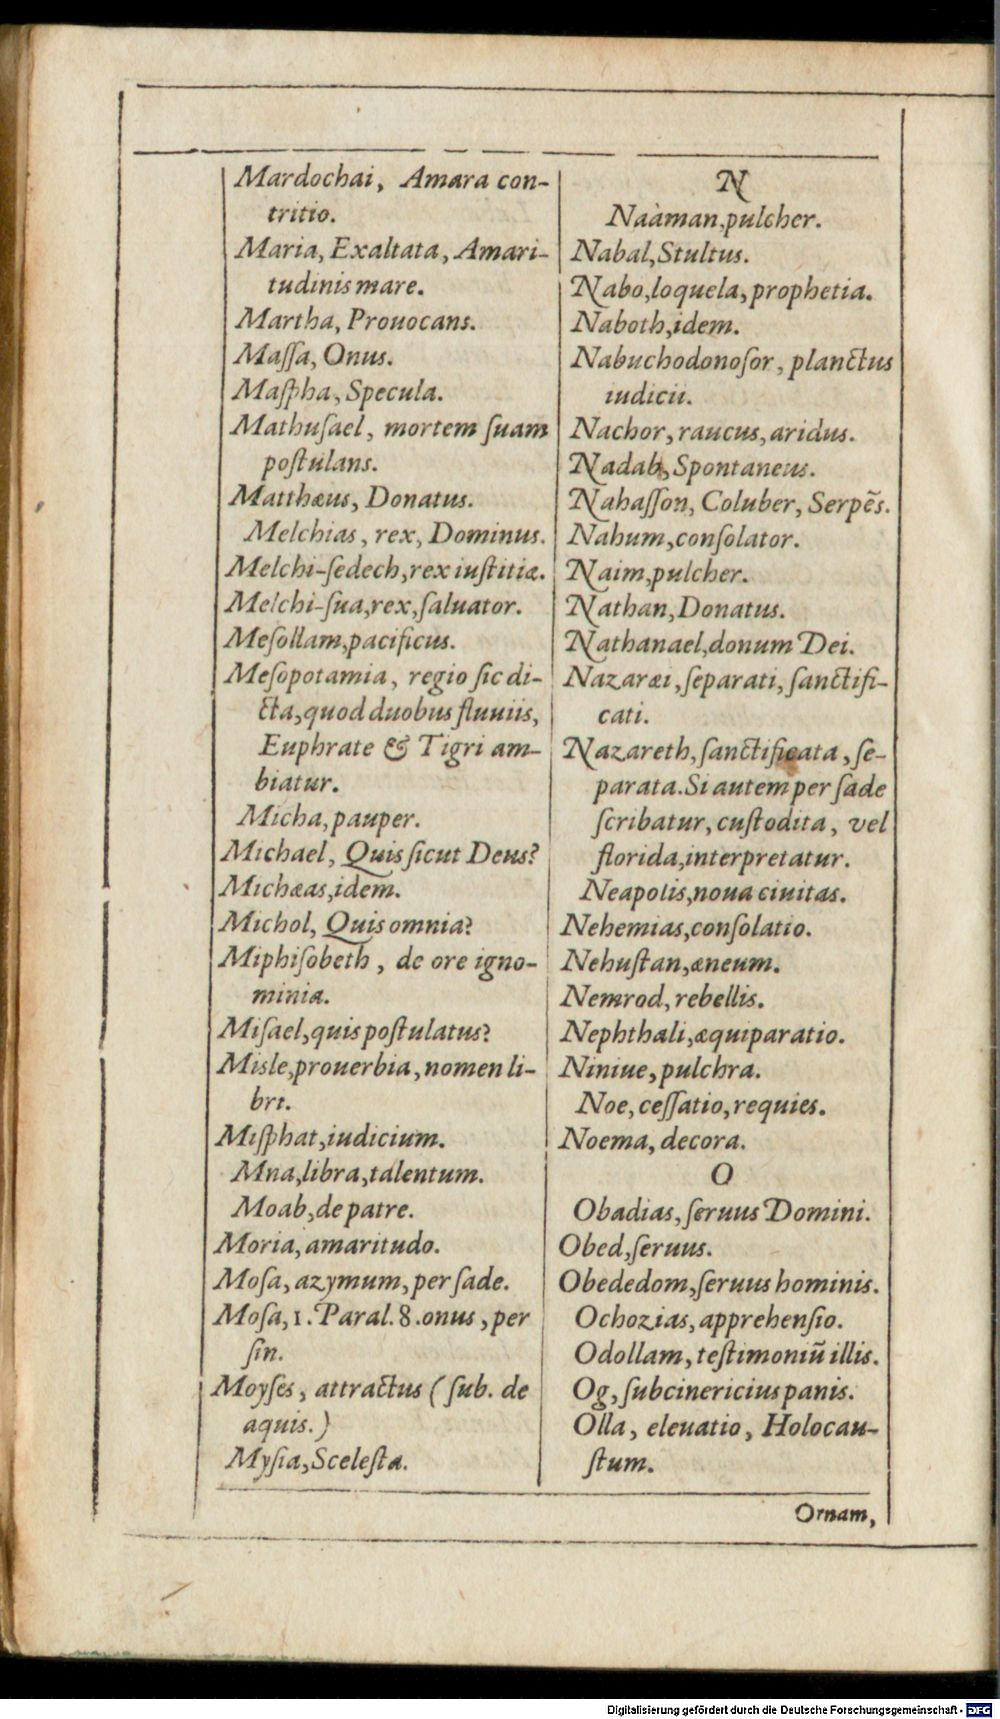 Mardochai, Amara con-
tritio.
Maria, Exaltata, Amari-
tudinis mare.
Martha, Prouocans.
Maſſa, Onus.
Maſpha, Specula.
Mathuſael, mortem ſuam
poſtulans.
Matthæus, Donatus.
Melchias, rex, Dominus.
Melchi-ſedech, rex iuſtitiæ.
Melchi-ſua, rex, ſaluator.
Meſollam, pacificus.
Meſopotamia, regio ſic di-
cta, quod duobus fluuiis,
Euphrate & Tigri am-
biatur.
Micha, pauper.
Michael, Quis ſicut Deus?
Michæas, idem.
Michol, Quis omnia?
Miphiſobeth, de ore igno-
miniæ.
Miſael, quis poſtulatus?
Misle, prouerbia, nomen li-
bri.
Miſphat, iudicium.
Mna, libra, talentum.
Moab, de patre.
Moria, amaritudo.
Moſa, azymum, per ſade.
Moſa, 1. Paral. 8. onus, per
ſin.
Moyſes, attractus (ſub. de
aquis.)
Myſia, Sceleſta.
N
Naàman, pulcher.
Nabal, Stultus.
Nabo, loquela, prophetia.
Naboth, idem.
Nabuchodonoſor, planctus
iudicii.
Nachor, raucus, aridus.
Nadab, Spontaneus.
Nahaſſon, Coluber, Serpẽs.
Nahum, conſolator.
Naim, pulcher.
Nathan, Donatus.
Nathanael, donum Dei.
Nazaræi, ſeparati, ſanctifi-
cati.
Nazareth, ſanctificata, ſe-
parata. Si autem per ſade
ſcribatur, cuſtodita, vel
florida, interpretatur.
Neapolis, noua ciuitas.
Nehemias, conſolatio.
Nehuſtan, æneum.
Nemrod, rebellis.
Nephthali, æquiparatio.
Niniue, pulchra.
Noe, ceſſatio, requies.
Noema, decora.
O
Obadias, ſeruus Domini.
Obed, ſeruus.
Obededom, ſeruus hominis.
Ochozias, apprehenſio.
Odollam, teſtimoniũ illis.
Og, ſubcinericius panis.
Olla, eleuatio, Holocau-
ſtum.
Ornam,
Digitalisierung gefördert durch die Deutsche Forschungsgemeinschaft - DFG